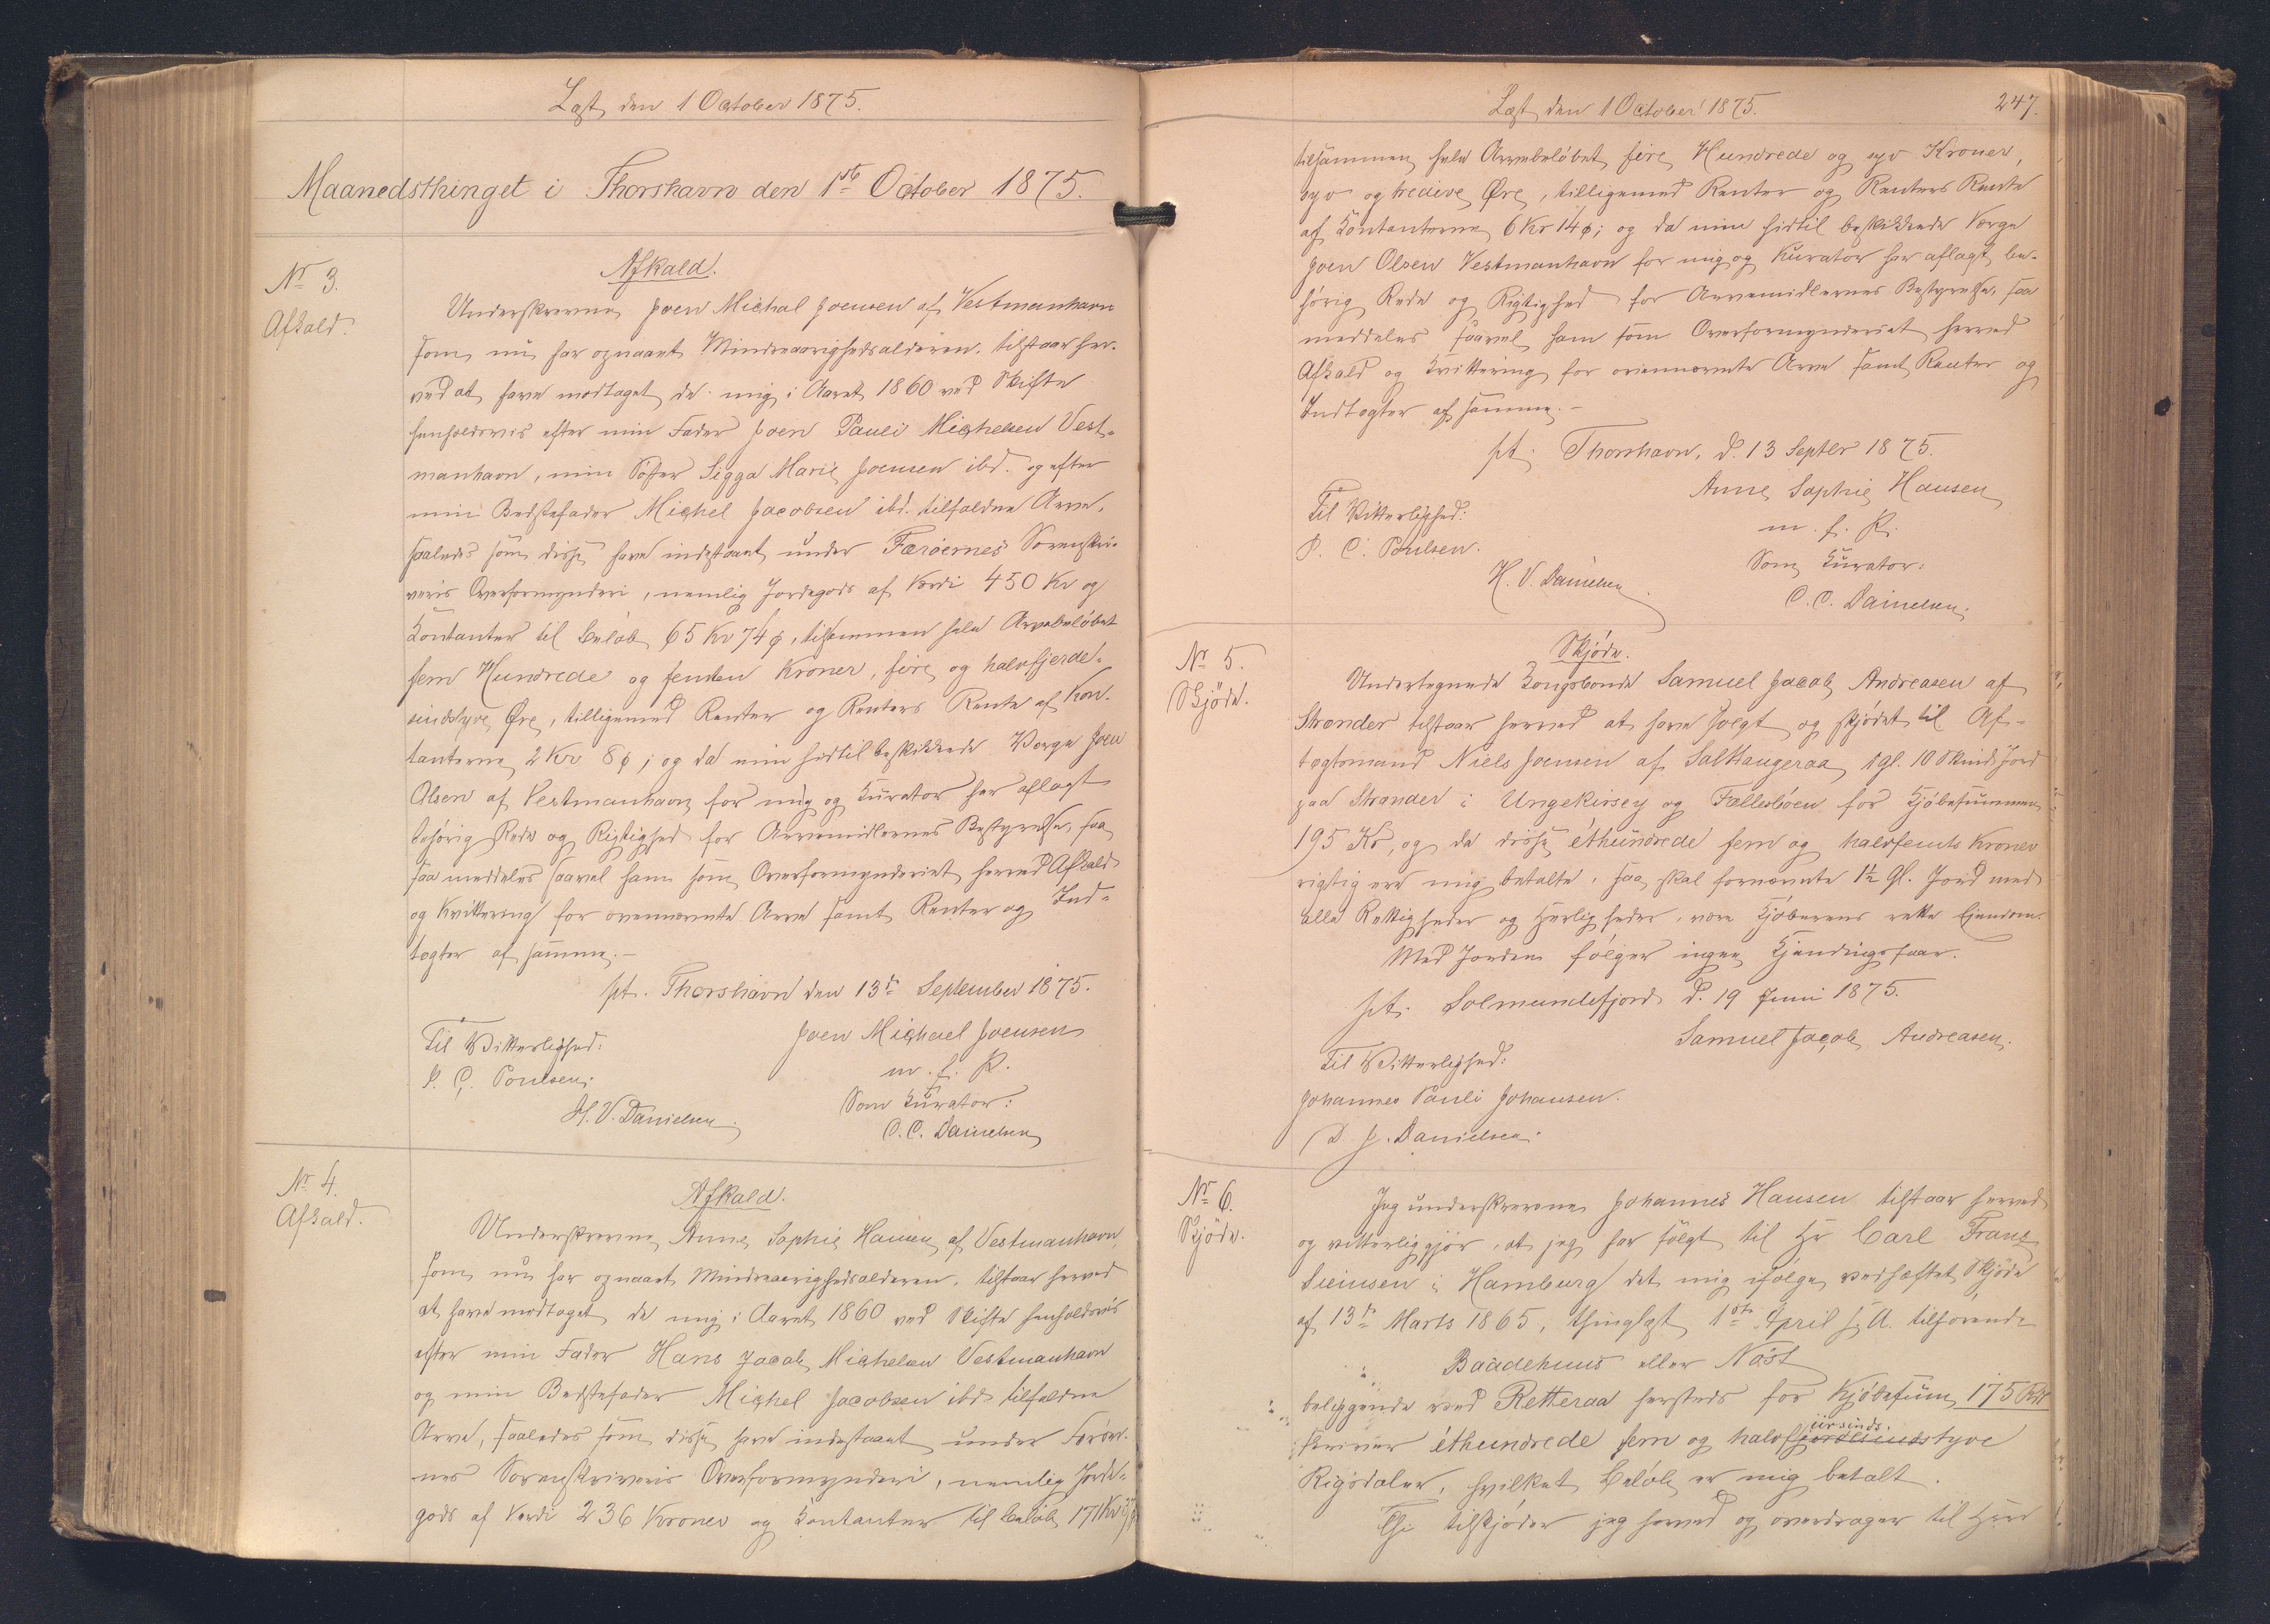 Læst den 1 October 1875.
Maanedsthinget i Thorshavn den 1ste October 1875.
No 3.
Afkald.
Afkald.
Underskrevne Joen Michal Joensen af Vestmanhavn
som nu har opnaaet Mindreaarighedsalderen, tilstaar her-
ved at have modtaget de mig i Aaret 1860 ved Skifte
henholdsvis efter min Fader Joen Pauli Michelsen Vest-
manhavn, min Söster Sigga Marie Joensen ibd. og efter
min Bedstefader Michel Jacobsen ibd. tilfaldne Arve,
saaledes som disse have indestaaet under Færöernes Sorenskri-
veris Overformynderi, nemlig Jordegods af Værdi 450 Kr og
Contanter til Belöb 65 Kr 74 ø, tilsammen hele Arvebelöbet
fem Hundrede og femten Kroner, fire og halvfjerde-
sindstyve Øre, tilligemed Renter og Renters Rente af Kon-
tanterne 2 Kr 8 ø; og da min hidtil beskikkede Værge Joen
Olsen af Vestmanhavn for mig og Kurator har aflagt
behörig Rede og Rigtighed for Arvemidlernes Bestyrelse, saa
saa meddeles saavel ham som Overformynderiet herved Afkald
og Kvittering for ovennævnte Arve samt Renter og Ind-
tægter af samme.-
pt. Thorshavn den 13de September 1875.
Joen Michael Joensen
m. f. P.
Til Vitterlighed:
P. C. Poulsen.
H. V. Danielsen.
Som Kurator:
O. C. Danielsen
No 4.
Afkald.
Afkald.
Underskrevne Anne Sophie Hansen af Vestmanhavn,
som nu har opnaaet Mindreaarighedsalderen, tilstaar herved
at have modtaget de mig i Aaret 1860 ved Skifte henholdsvis
efter min Fader Hans Jacob Michelsen Vestmanhavn
og min Bedstefader Michel Jacobsen ibd tilfaldne
Arve, saaledes som disse have indestaaet under Færöer-
nes Sorenskriveris Overformynderi, nemlig Jorde-
gods af Værdi 236 Kroner og Contanter til Belöb 171 Kr
Læst den 1 October 1875.
247.
tilsammen hele Arvebelöbet fire Hundrede og syv Kroner,
syv og tredive Øre, tilligemed Renter og Renters Rente
af Contanterne 6 Kr 14 ø; og da min hidtil beskikkede Værge
Joen Olsen Vestmanhavn for mig og Kurator har aflagt be-
hörig Rede og Rigtighed for Arvemidlernes Bestyrelse, saa
meddeles saavel ham som Overformynderiet herved
Afkald og Kvittering for ovennævnte Arve samt Renter og
Indtægter af samme.-
pt. Thorshavn, d. 13 Septbr 1875.
Anne Sophie Hansen
m. f. P.
Til Vitterlighed:
P. C. Poulsen.
H. V. Danielsen.
Som Kurator:
O. C. Danielsen.
No 5.
Skjöde.
Skjöde.
Undertegnede Kongsbonde Samuel Jacob Andreasen af
Strander tilstaar herved at have solgt og skjödet til Af-
tægtsmand Niels Joensen af Salthangeraa 1 gl. 10 Skind Jord
paa Strander i Ungekirsey og Fællesböen for Kjöbesummen
195 Kr, og da disse éthundrede fem og halvfemts Kroner
rigtig ere mig betalte, saa skal fornævnte 1½ Gl. Jord med
alle Rettigheder og Herligheder, være Kjöberens rette Eiendom.
Med Jorden fölger ingen Kjendingsfaar.
pt. Solmundefjord d. 19 Juni 1875.
Samuel Jacob Andreasen.
Til Vitterlighed:
Johannes Pauli Johansen.
D. J. Danielsen.
No 6.
Skjöde.
Jeg underskrevne Johannes Hansen tilstaar herved
og vitterliggjör, at jeg har solgt til Hr Carl Franz
Siemsen i Hamburg det mig ifölge vedhæftet Skjöde
af 13de Marts 1865, thinglæst 1ste April s. A. tilhörende
Baadehuus eller Nöst
beliggende ved Retteraa hersteds for Kjöbesum 175 Rd
skriver éthundrede fem og halvfjerdesindstyve
iirsinds
Rigsdaler, hvilket Belöb er mig betalt.
Thi tilskjöder jeg herved og overdrager til Herr